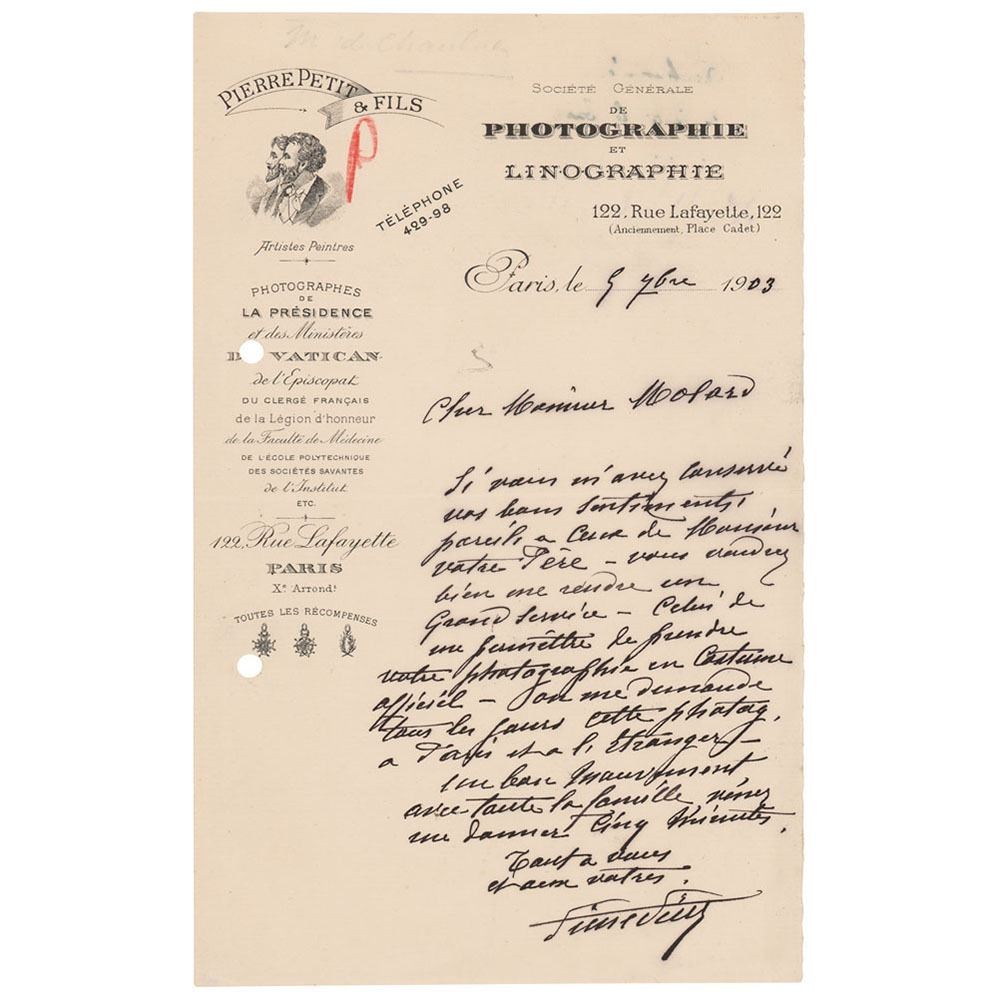 PIERRE PETIT & FILS
P
Artistes Peintres
PHOTOGRAPHES
DE
LA PRÉSIDENCE
et des Ministères
VATICAN
de l'Episcopat
DU CLERGÉ FRANÇAIS
de la Légion d'honneur
de la Faculté de Médecine
DE L'ÉCOLE POLYTECHNIQUE
DES SOCIÉTÉS SAVANTES
de l'Institut
ETC.
122, Rue Lafayette
PARIS
Xe Arrondt
TOUTES LES RÉCOMPENSES
TÉLÉPHONE
429-98
SOCIÉTÉ GÉNÉRALE
DE
PHOTOGRAPHIE
ET
LINOGRAPHIE
122, Rue Lafayette, 122
(Anciennement, Place Cadet)
Paris, le 5 7bre 1903
Cher Monsieur Molard
Si vous m'avez conservé
vos bons sentiments
pareils a ceux de Monsieur
votre Père – vous voudrez
bien me rendre un
Grand Service – Celui de
me permettre de prendre
votre photographie en Costume
officiel – on me demande
tous les jours cette photog,
a Paris et a l'Etranger –
un bon mouvement
avec toute la famille, venez
me donner Cinq Minutes.
Tout a vous
et aux votres.
Pierre Petit